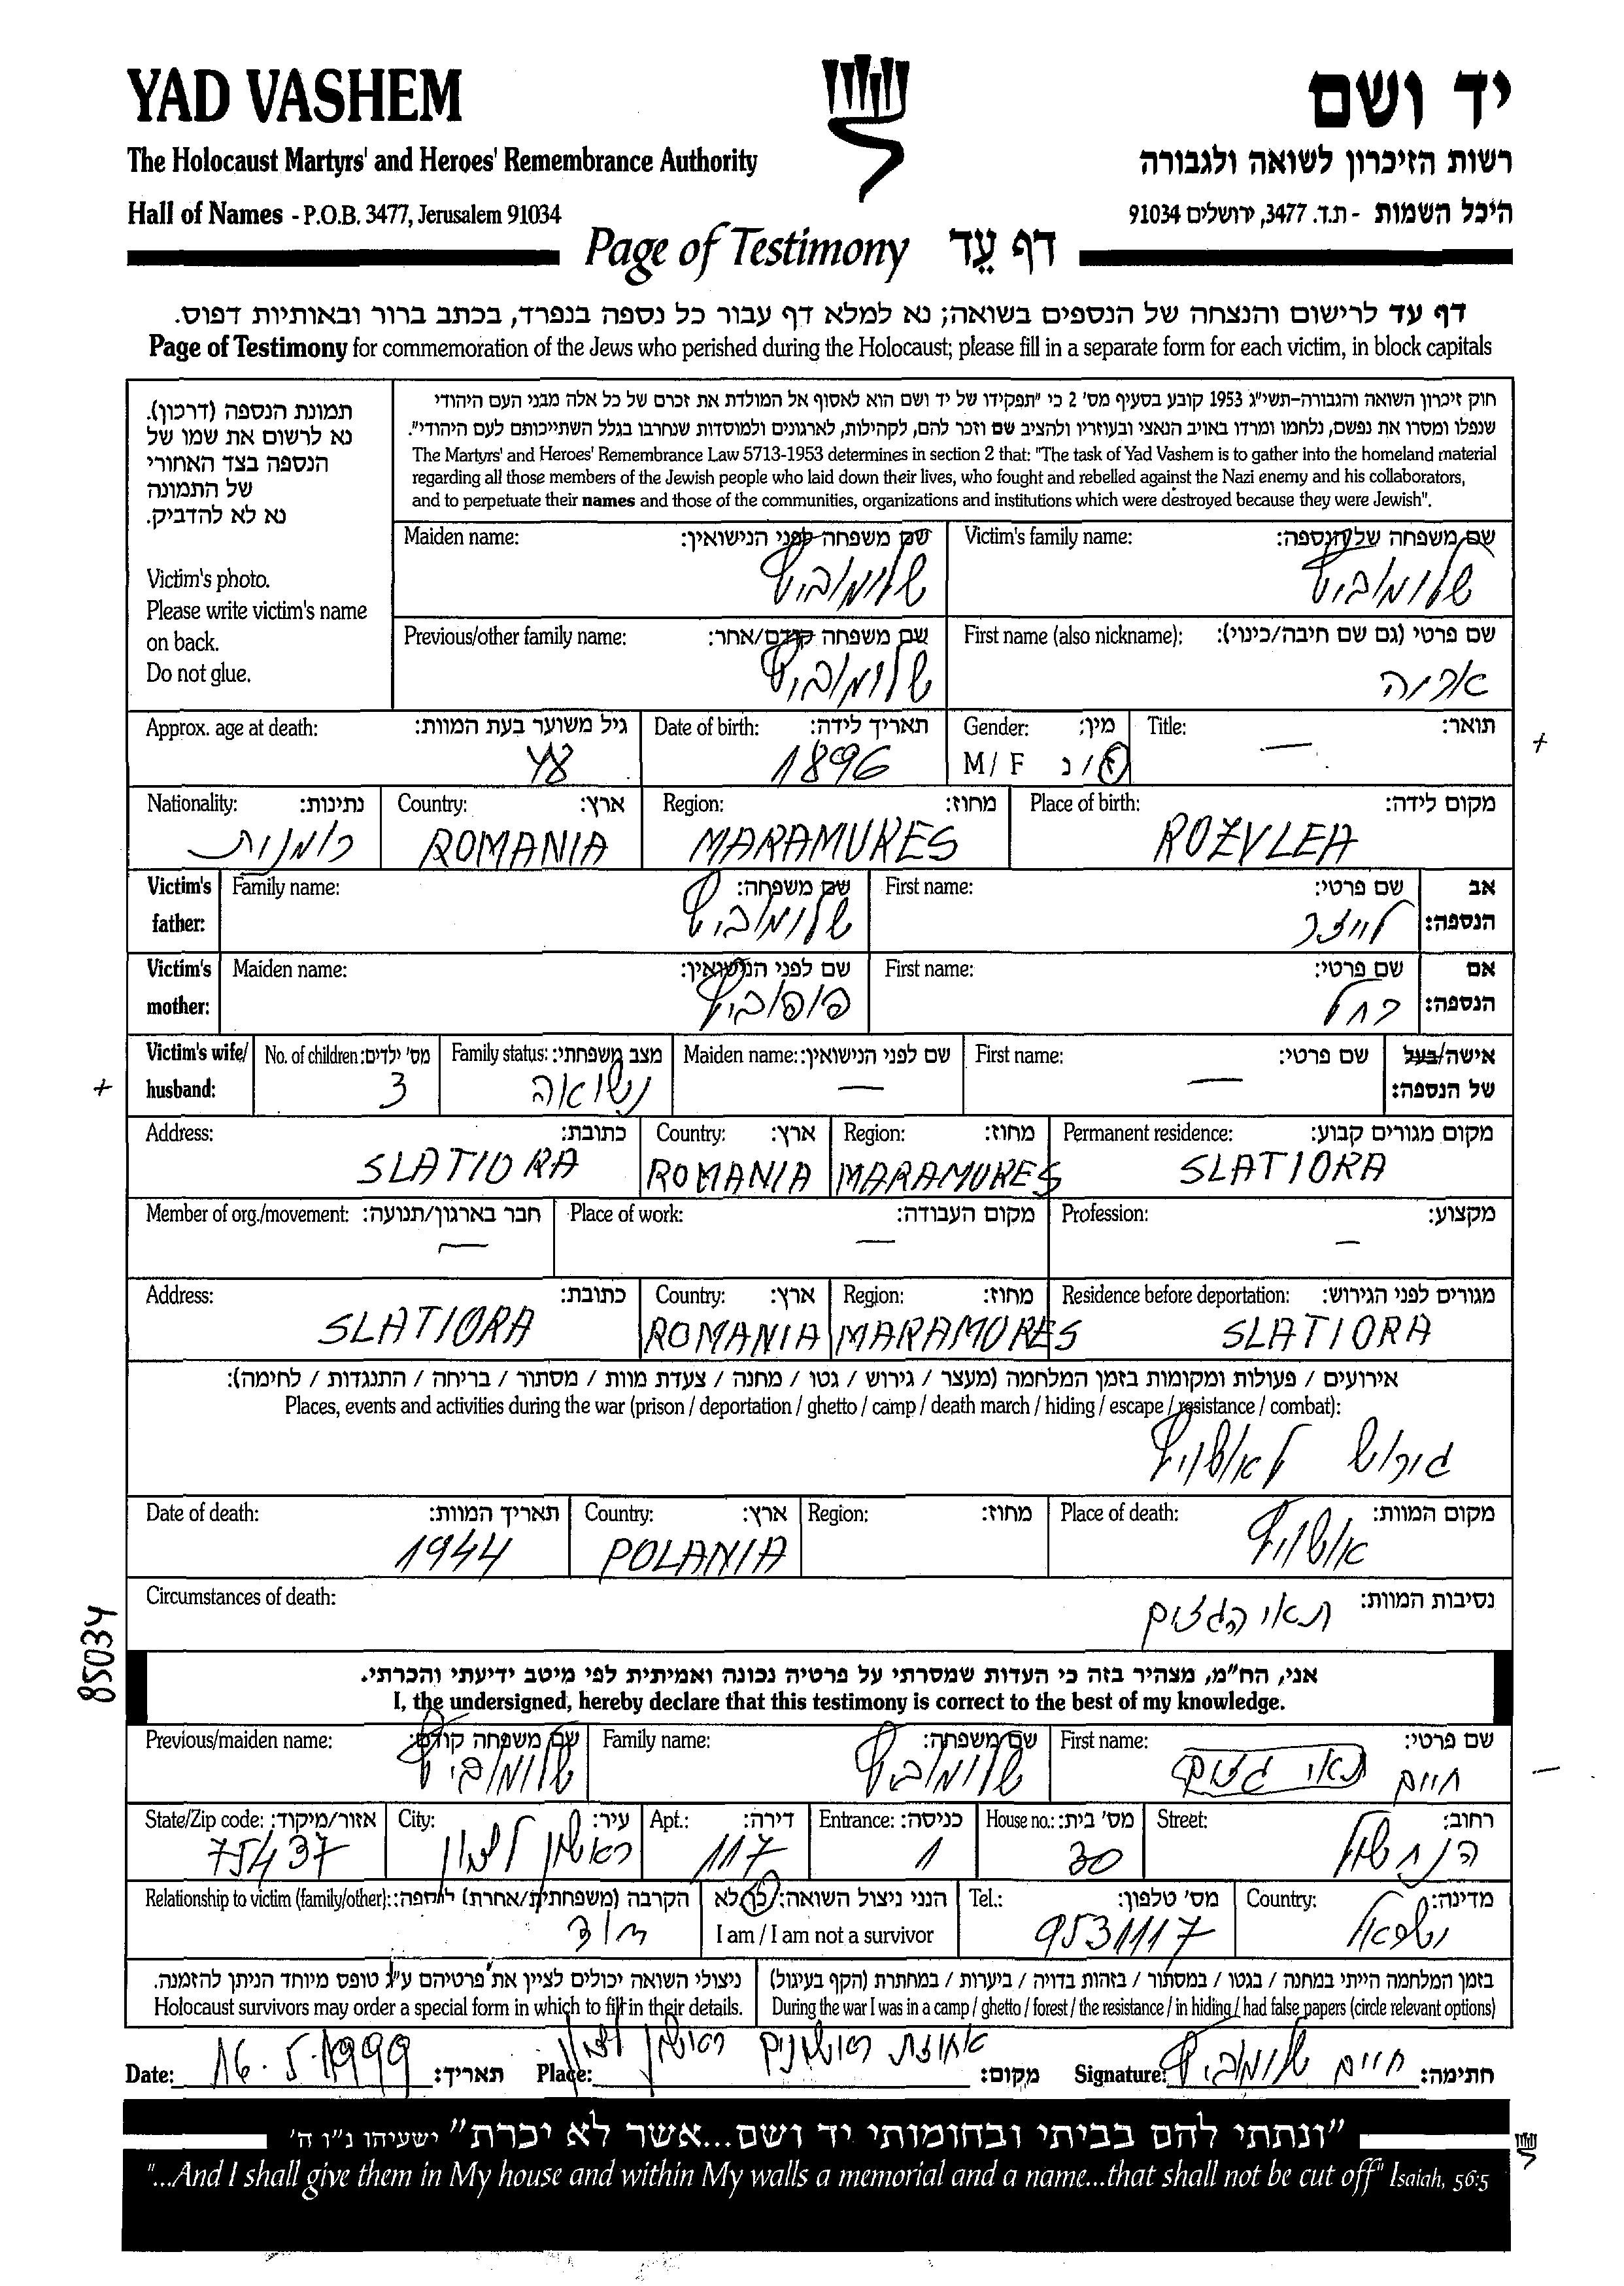 YAD VASHEM
יד ושם
The Holocaust Martyrs' and Heroes' Remembrance Authority
רשות הזיכרון לשואה ולגבורה
Hall of Names - P.O.B. 3477, Jerusalem 91034
היכל השמות - ת.ד. 3477, ירושלים 91034
Page of Testimony דף עֵד
דף עד לרישום והנצחה של הנספים בשואה; נא למלא דף עבור כל נספה בנפרד, בכתב ברור ובאותיות דפוס.
Page of Testimony for commemoration of the Jews who perished during the Holocaust; please fill in a separate form for each victim, in block capitals
תמונת הנספה (דרכון).
נא לרשום את שמו של
הנספה בצד האחורי
של התמונה
נא לא להדביק.
Victim's photo.
Please write victim's name
on back.
Do not glue.
חוק זיכרון השואה והגבורה-תשי"ג 1953 קובע בסעיף מס' 2 כי "תפקידו של יד ושם הוא לאסוף אל המולדת את זכרם של כל אלה מבני העם היהודי
שנפלו ומסרו את נפשם, נלחמו ומרדו באויב הנאצי ובעוזריו ולהציב שם וזכר להם, לקהילות, לארגונים ולמוסדות שנחרבו בגלל השתייכותם לעם היהודי".
The Martyrs' and Heroes' Remembrance Law 5713-1953 determines in section 2 that: "The task of Yad Vashem is to gather into the homeland material
regarding all those members of the Jewish people who laid down their lives, who fought and rebelled against the Nazi enemy and his collaborators,
and to perpetuate their names and those of the communities, organizations and institutions which were destroyed because they were Jewish".
Victim's family name: שם משפחה של הנספה:
שלומוביץ
Maiden name: שם משפחה לפני הנישואין:
שלומוביץ
First name (also nickname): שם פרטי (גם שם חיבה/כינוי):
Previous/other family name: שם משפחה קודם/אחר:
שלומוביץ
Title: תואר:
—
Gender: מין:
M / F ז / נ
Date of birth: תאריך לידה:
1896
Approx. age at death: גיל משוער בעת המוות:
48
+
Place of birth: מקום לידה:
ROZVLEA
Region: מחוז:
MARAMURES
Country: ארץ:
ROMANIA
Nationality: נתינות:
רומנית
Victim's father: אב הנספה:
First name: שם פרטי:
לייזר
Family name: שם משפחה:
שלומוביץ
Victim's mother: אם הנספה:
First name: שם פרטי:
רחל
Maiden name: שם לפני הנישואין:
פופוביץ
Victim's wife/ husband: אישה/בעל של הנספה:
First name: שם פרטי:
—
Maiden name: שם לפני הנישואין:
—
Family status: מצב משפחתי:
נשואה
No. of children: מס' ילדים:
3
+
Permanent residence: מקום מגורים קבוע:
SLATIORA
Region: מחוז:
MARAMURES
Country: ארץ:
ROMANIA
Address: כתובת:
SLATIORA
Profession: מקצוע:
—
Place of work: מקום העבודה:
—
Member of org./movement: חבר בארגון/תנועה:
—
Residence before deportation: מגורים לפני הגירוש:
SLATIORA
Region: מחוז:
MARAMURES
Country: ארץ:
ROMANIA
Address: כתובת:
SLATIORA
אירועים / פעולות ומקומות בזמן המלחמה (מעצר / גירוש / גטו / מחנה / צעדת מוות / מסתור / בריחה / התנגדות / לחימה):
Places, events and activities during the war (prison / deportation / ghetto / camp / death march / hiding / escape / resistance / combat):
גירוש לאושוויץ
Place of death: מקום המוות:
אושוויץ
Region: מחוז:
Country: ארץ:
POLANIA
Date of death: תאריך המוות:
1944
Circumstances of death: נסיבות המוות:
תאי הגזים
85034
אני, הח"מ, מצהיר בזה כי העדות שמסרתי על פרטיה נכונה ואמיתית לפי מיטב ידיעתי והכרתי.
I, the undersigned, hereby declare that this testimony is correct to the best of my knowledge.
First name: שם פרטי:
חיים תאי גזים
Family name: שם משפחה:
שלומוביץ
Previous/maiden name: שם משפחה קודם:
שלומוביץ
Street: רחוב:
הנחשול
House no.: מס' בית:
30
Entrance: כניסה:
1
Apt.: דירה:
117
City: עיר:
ראשון לציון
State/Zip code: אזור/מיקוד:
75437
Country: מדינה:
ישראל
Tel.: מס' טלפון:
9531117
הנני ניצול השואה: כן/לא
I am / I am not a survivor
Relationship to victim (family/other): הקרבה (משפחתית/אחרת) לנספה:
בזמן המלחמה הייתי במחנה / בגטו / במסתור / בזהות בדויה / ביערות / במחתרת (הקף בעיגול)
During the war I was in a camp / ghetto / forest / the resistance / in hiding / had false papers (circle relevant options)
ניצולי השואה יכולים לציין את פרטיהם ע"ג טופס מיוחד הניתן להזמנה.
Holocaust survivors may order a special form in which to fill in their details.
Signature: חיים שלומוביץ חתימה:
Place: אחוזת ראשונים ראשון לציון מקום:
Date: 16.5.1999 תאריך:
"ונתתי להם בביתי ובחומותי יד ושם...אשר לא יכרת" ישעיהו נ"ו ה'
"...And I shall give them in My house and within My walls a memorial and a name...that shall not be cut off" Isaiah, 56:5